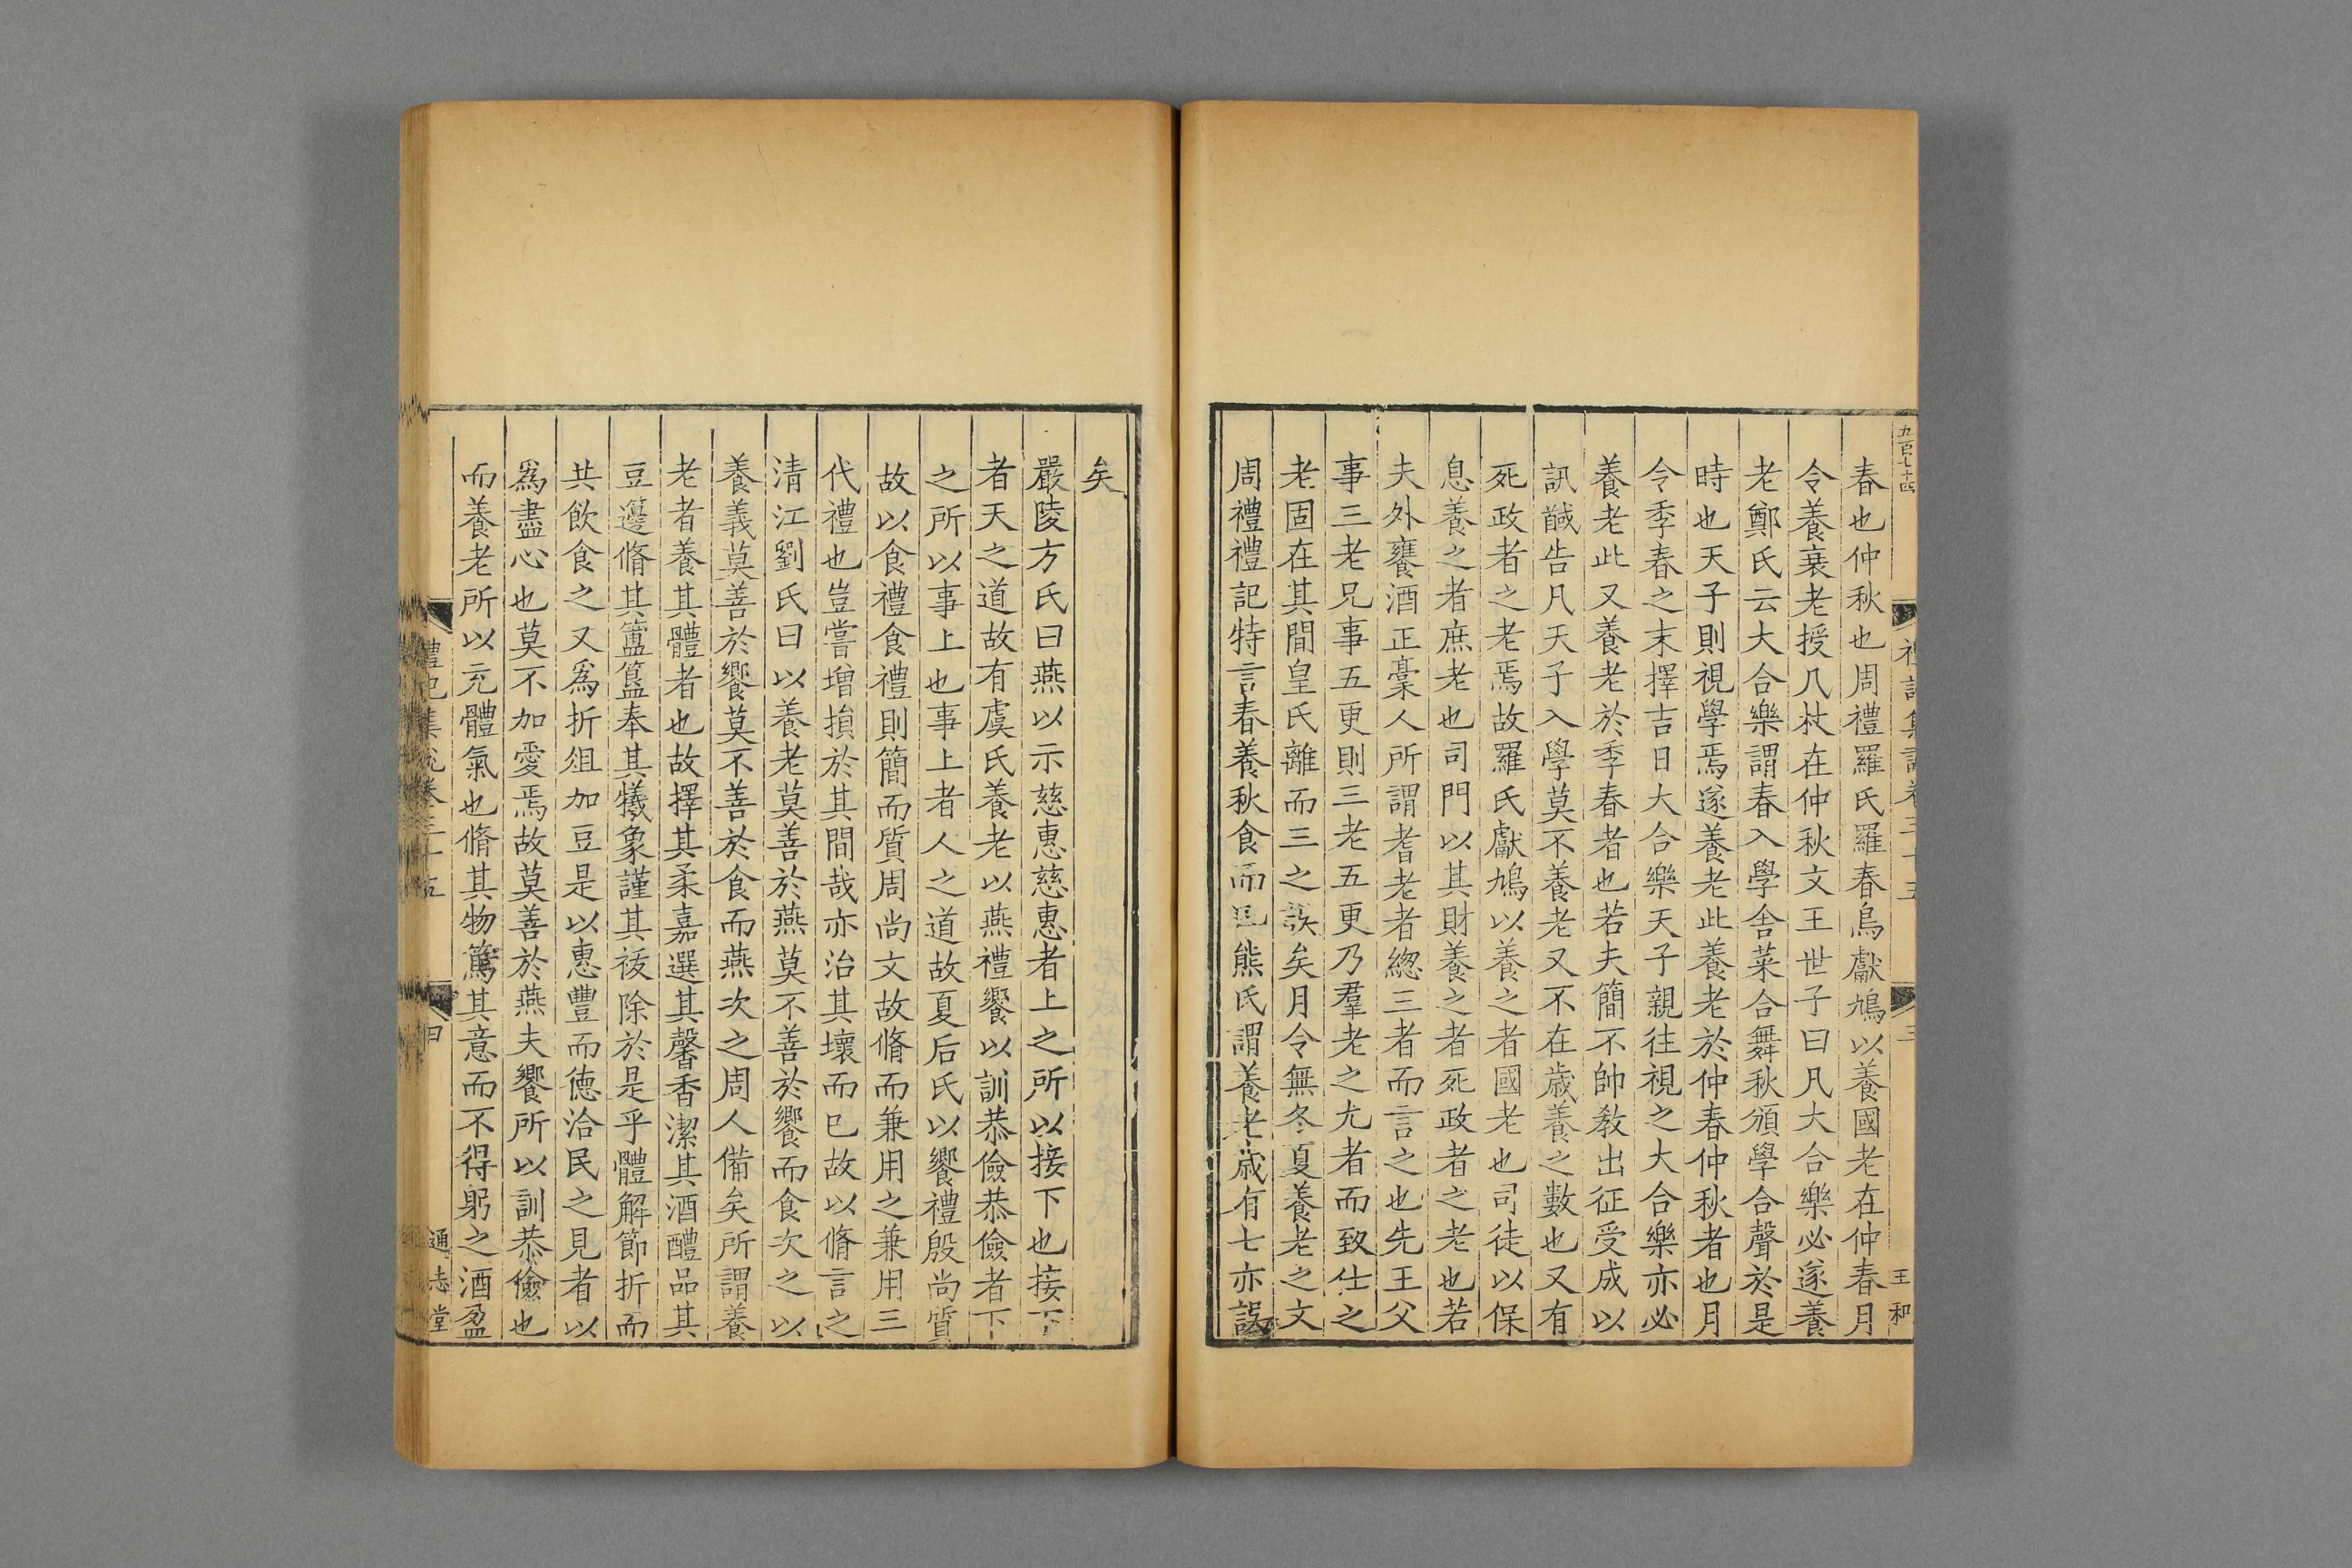 五百七十四
禮記集說卷三十五
三
王和
春也仲秋也周禮羅氏羅春鳥獻鳩以養國老在仲春月
令養衰老授几杖在仲秋文王世子曰凡大合樂必遂養
老鄭氏云大合樂謂春入學舍菜合舞秋頒學合聲於是
時也天子則視學焉遂養老此養老於仲春仲秋者也月
令季春之末擇吉日大合樂天子親往視之大合樂亦必
養老此又養老於季春者也若夫簡不帥教出征受成以
訊馘告凡天子入學莫不養老又不在歲養之數也又有
死政者之老焉故羅氏獻鳩以養之者國老也司徒以保
息養之者庶老也司門以其財養之者死政者之老也若
夫外饔酒正槀人所謂耆老者緫三者而言之也先王父
事三老兄事五更則三老五更乃羣老之尤者而致仕之
老固在其間皇氏離而三之誤矣月令無冬夏養老之文
周禮禮記特言春養秋食而已熊氏謂養老歲有七亦誤
矣
嚴陵方氏曰燕以示慈惠慈惠者上之所以接下也接下
者天之道故有虞氏養老以燕禮饗以訓恭儉恭儉者下
之所以事上也事上者人之道故夏后氏以饗禮殷尚質
故以食禮食禮則簡而質周尚文故脩而兼用之兼用三
代禮也豈嘗增損於其間哉亦治其壞而已故以脩言之
清江劉氏曰以養老莫善於燕莫不善於饗而食次之以
養義莫善於饗莫不善於食而燕次之周人備矣所謂養
老者養其體者也故擇其柔嘉選其馨香潔其酒醴品其
豆籩脩其簠簋奉其犧象謹其祓除於是乎體解節折而
共飲食之又爲折俎加豆是以惠豐而德洽民之見者以
爲盡心也莫不加愛焉故莫善於燕夫饗所以訓恭儉也
而養老所以充體氣也脩其物篤其意而不得躬之酒盈
禮記集說卷三十五
四
通志堂